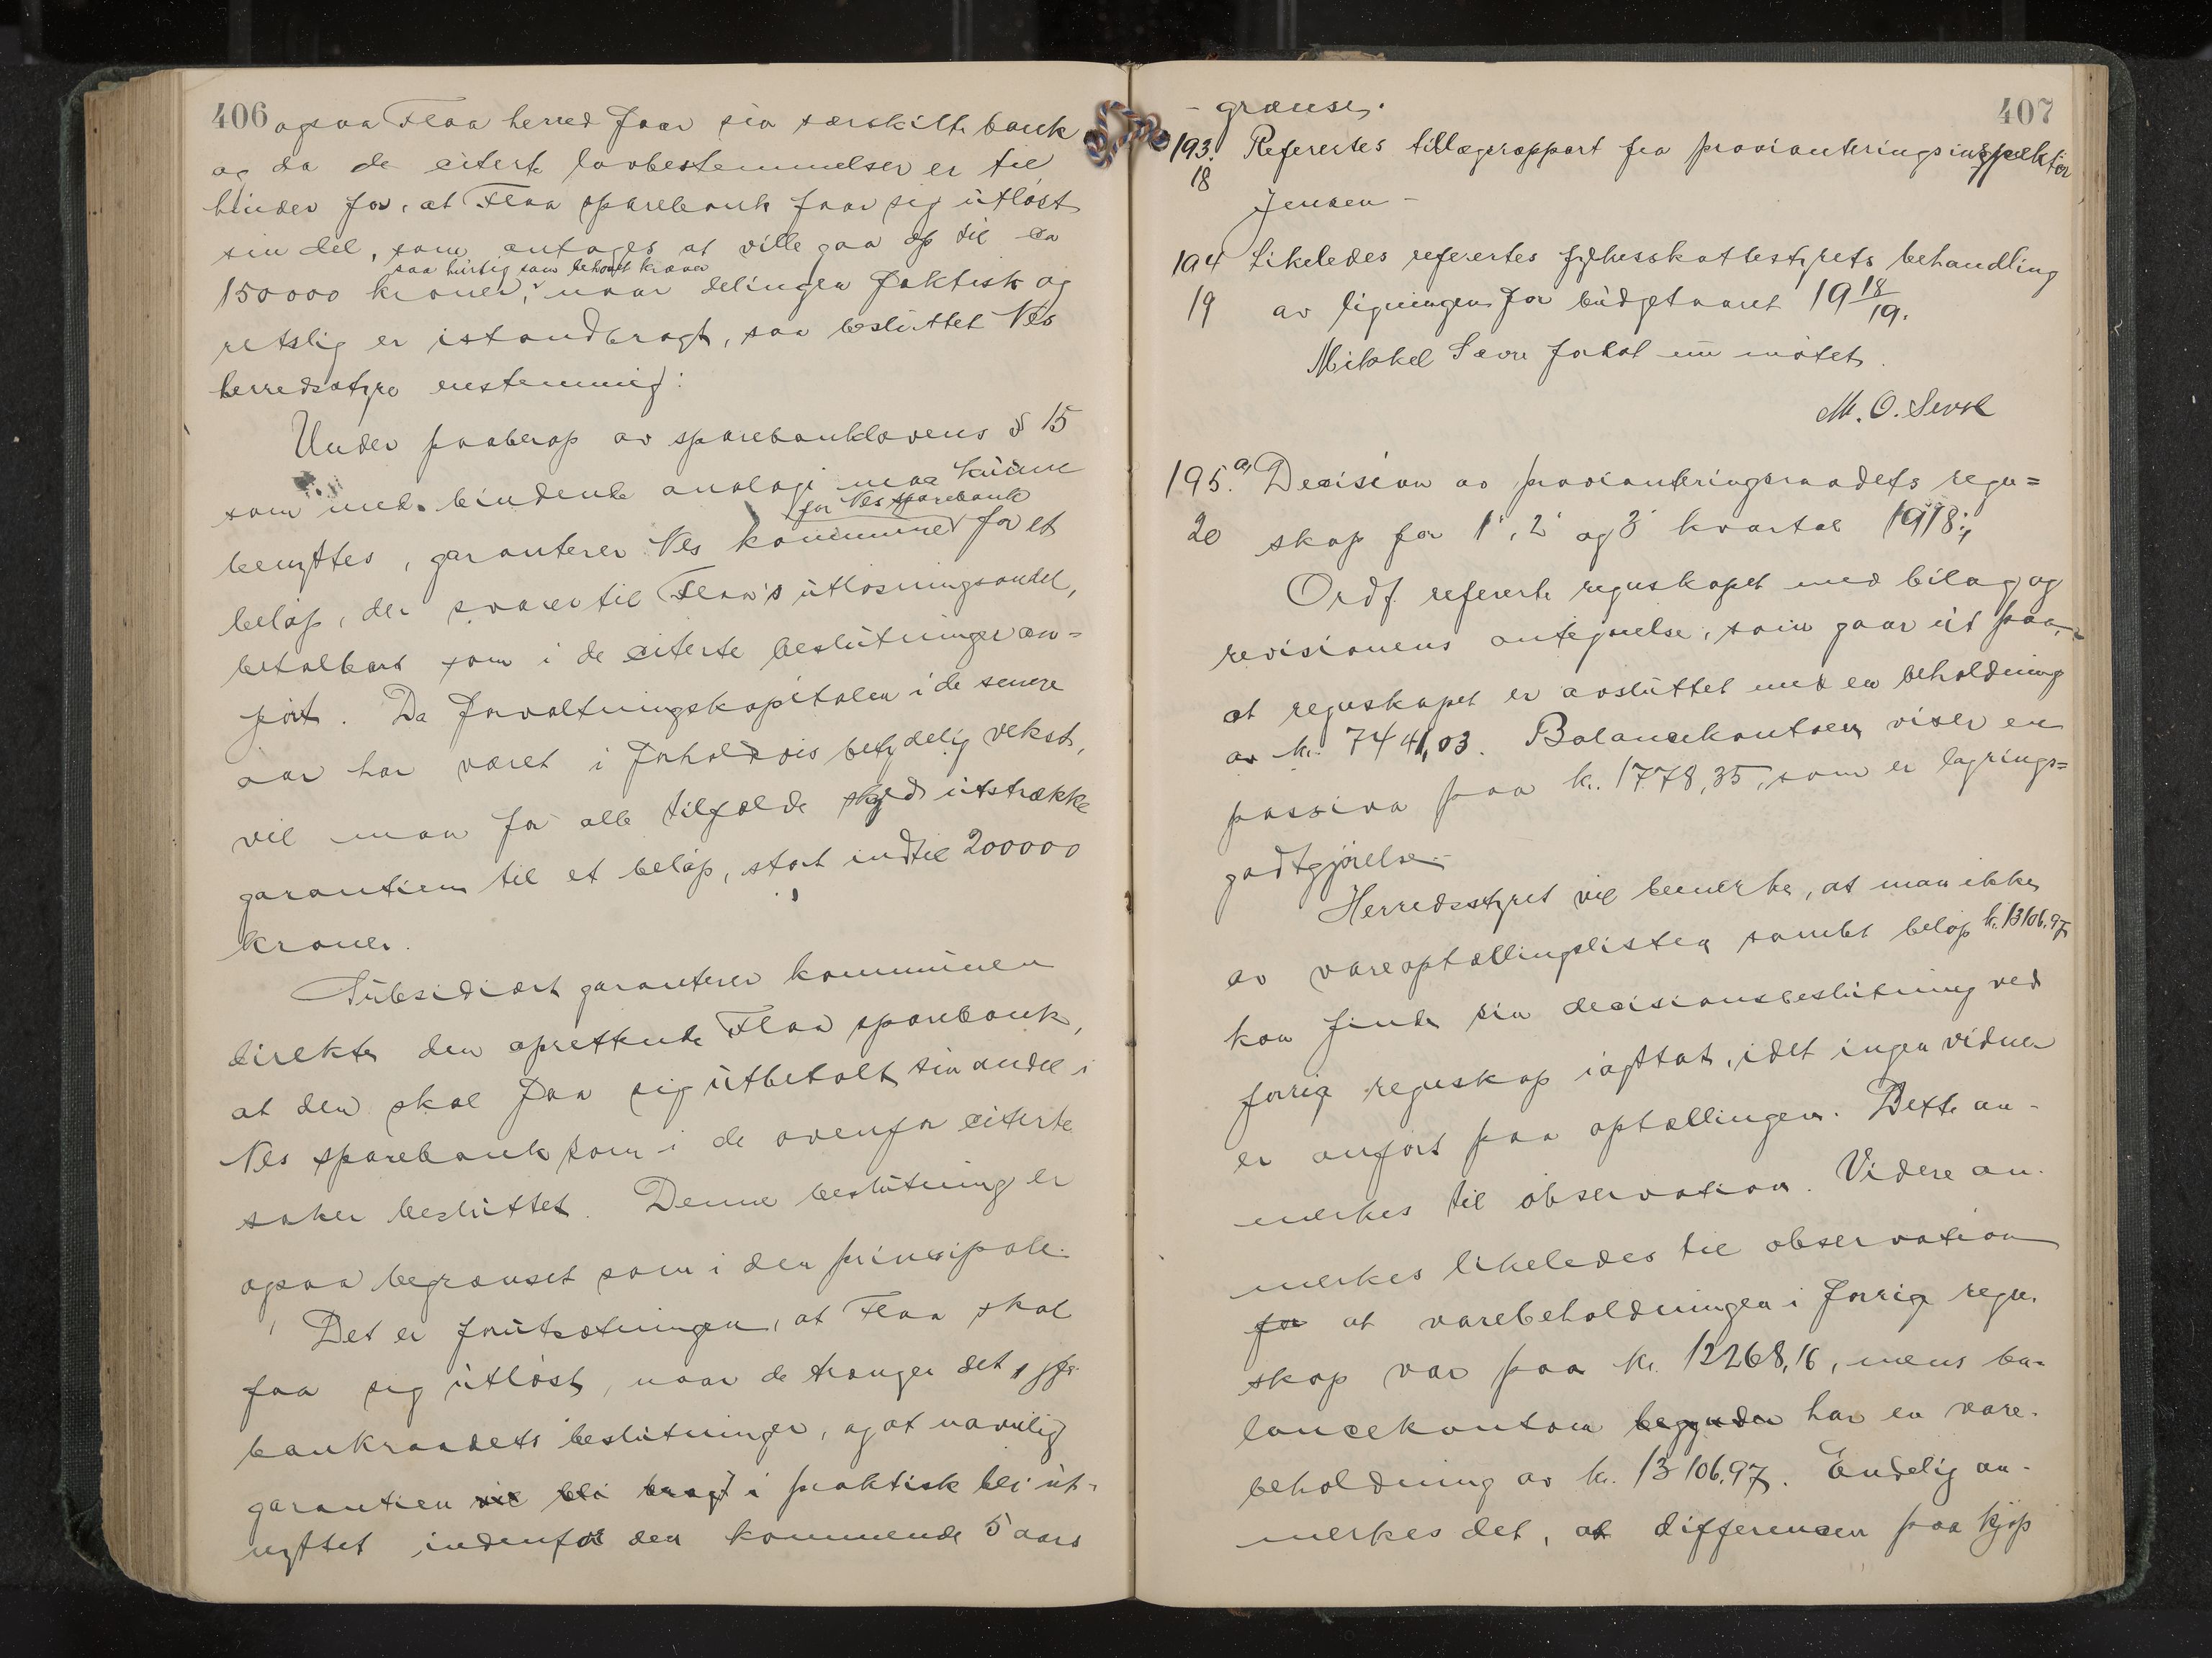 406
ogsaa Flaa herred faar sin særskilte bank
og da de citerte lovbestemmelser er til
hinder for, at Flaa sparebank faar sig utløst
sin del, som antages at ville gaa op til ca
saa hurtig som behovet kræver
150000 kroner, naar delingen faktisk og
retslig er istandbragt, saa besluttet Nes
herredsstyre enstemmig:
Under paaberop av sparebanklovens § 15
som med bindende analogi maa kunne
for Nes sparebank
benyttes, garanterer Nes kommune for et
beløp, der svarer til Flaa's utløsningsandel,
betalbart som i de citerte beslutninger an=
ført. Da forvaltningskapitalen i de senere
aar har været i forholdsvis betydelig vekst,
vil man for alle tilfælde skyld utstrække
garantien til et beløp, stort indtil 200000
kroner.
Subsidiært garanterer kommunen
direkte den oprettende Flaa sparebank,
at den skal faa sig utbetalt sin andel i
Nes sparebank som i de ovenfor citerte
saker besluttet. Denne beslutning er
ogsaa begrænset som i den principale.
Det er forutsætningen, at Flaa skal
faa sig utløst, naar de trænger det, jfr.
bankraadets beslutninger, og at navnlig
garantien vil bli bragt i praktisk bli ut-
nyttet indenfor den kommende 5 aars
407
- grænse.
193. Referertes tillægsrapport fra provianteringsinspektør
18
Jensen -
194 Likeledes refertes fylkesskattestyrets behandling
19 av ligningen for budgetaaret 19 18/19.
Mikkel Sævre forlot nu møtet.
M. O. Sevre
195. a, Decision av provianteringsraadets regn=
20 skap for 1', 2' og 3' kvartal 1918:
Ordf. refererte regnskapet med bilag og
revisionens antegnelse, som gaar ut paa,
at regnskapet er avsluttet med en beholdning
av kr. 7441,03. Balancekontoen viser en
passiva paa kr. 1778,35, som er lagrings=
godtgjørelse.
Herredsstyret vil bemerke, at man ikke
av vareoptællingslisten samlet beløp kr. 13106.97
kan finde sin decisionsbeslutning ved
forrige regnskap iagttat, idet ingen vidner
er anført paa optællingen. Dette an-
merkes til observation. Videre an-
merkes likeledes til observation
for at varebeholdningen i forrige regn-
skap var paa kr. 12268,16, mens ba-
lancekontoen begynder har en vare-
beholdning av kr. 13106.97. Endelig an-
merkes det, at differencen paa kjøp